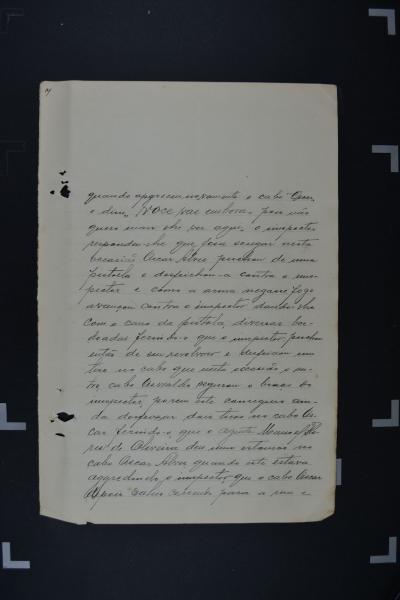 quando appareceu novamente o cabo Oscar
e disse, Voce vae embora, pois não
quero mais lhe ver aqui, o inspector
respondeu-lhe que fosse socegar nesta
occasião Oscar Alves puchou de uma
pistola e desfechou-a contra o ins-
pector e como a arma negasse fogo
avançou contra o inspector dando-lhe
com o cano da pistola, diversas bor-
doadas ferindo-o que o inspector puchou
então de seu revolver e desfechou um
tiro no cabo que nesta occasião o ou-
tro cabo Oswaldo segurou o braço do
inspector, porem este conseguiu ain-
da desfechar dois tiros no cabo Os-
car ferindo-o que o agente Manoel
de Oliveira deu uns no
cabo Oscar Alves quando este estava
aggredindo o inspector, que o cabo Oscar
Alves para a rua e